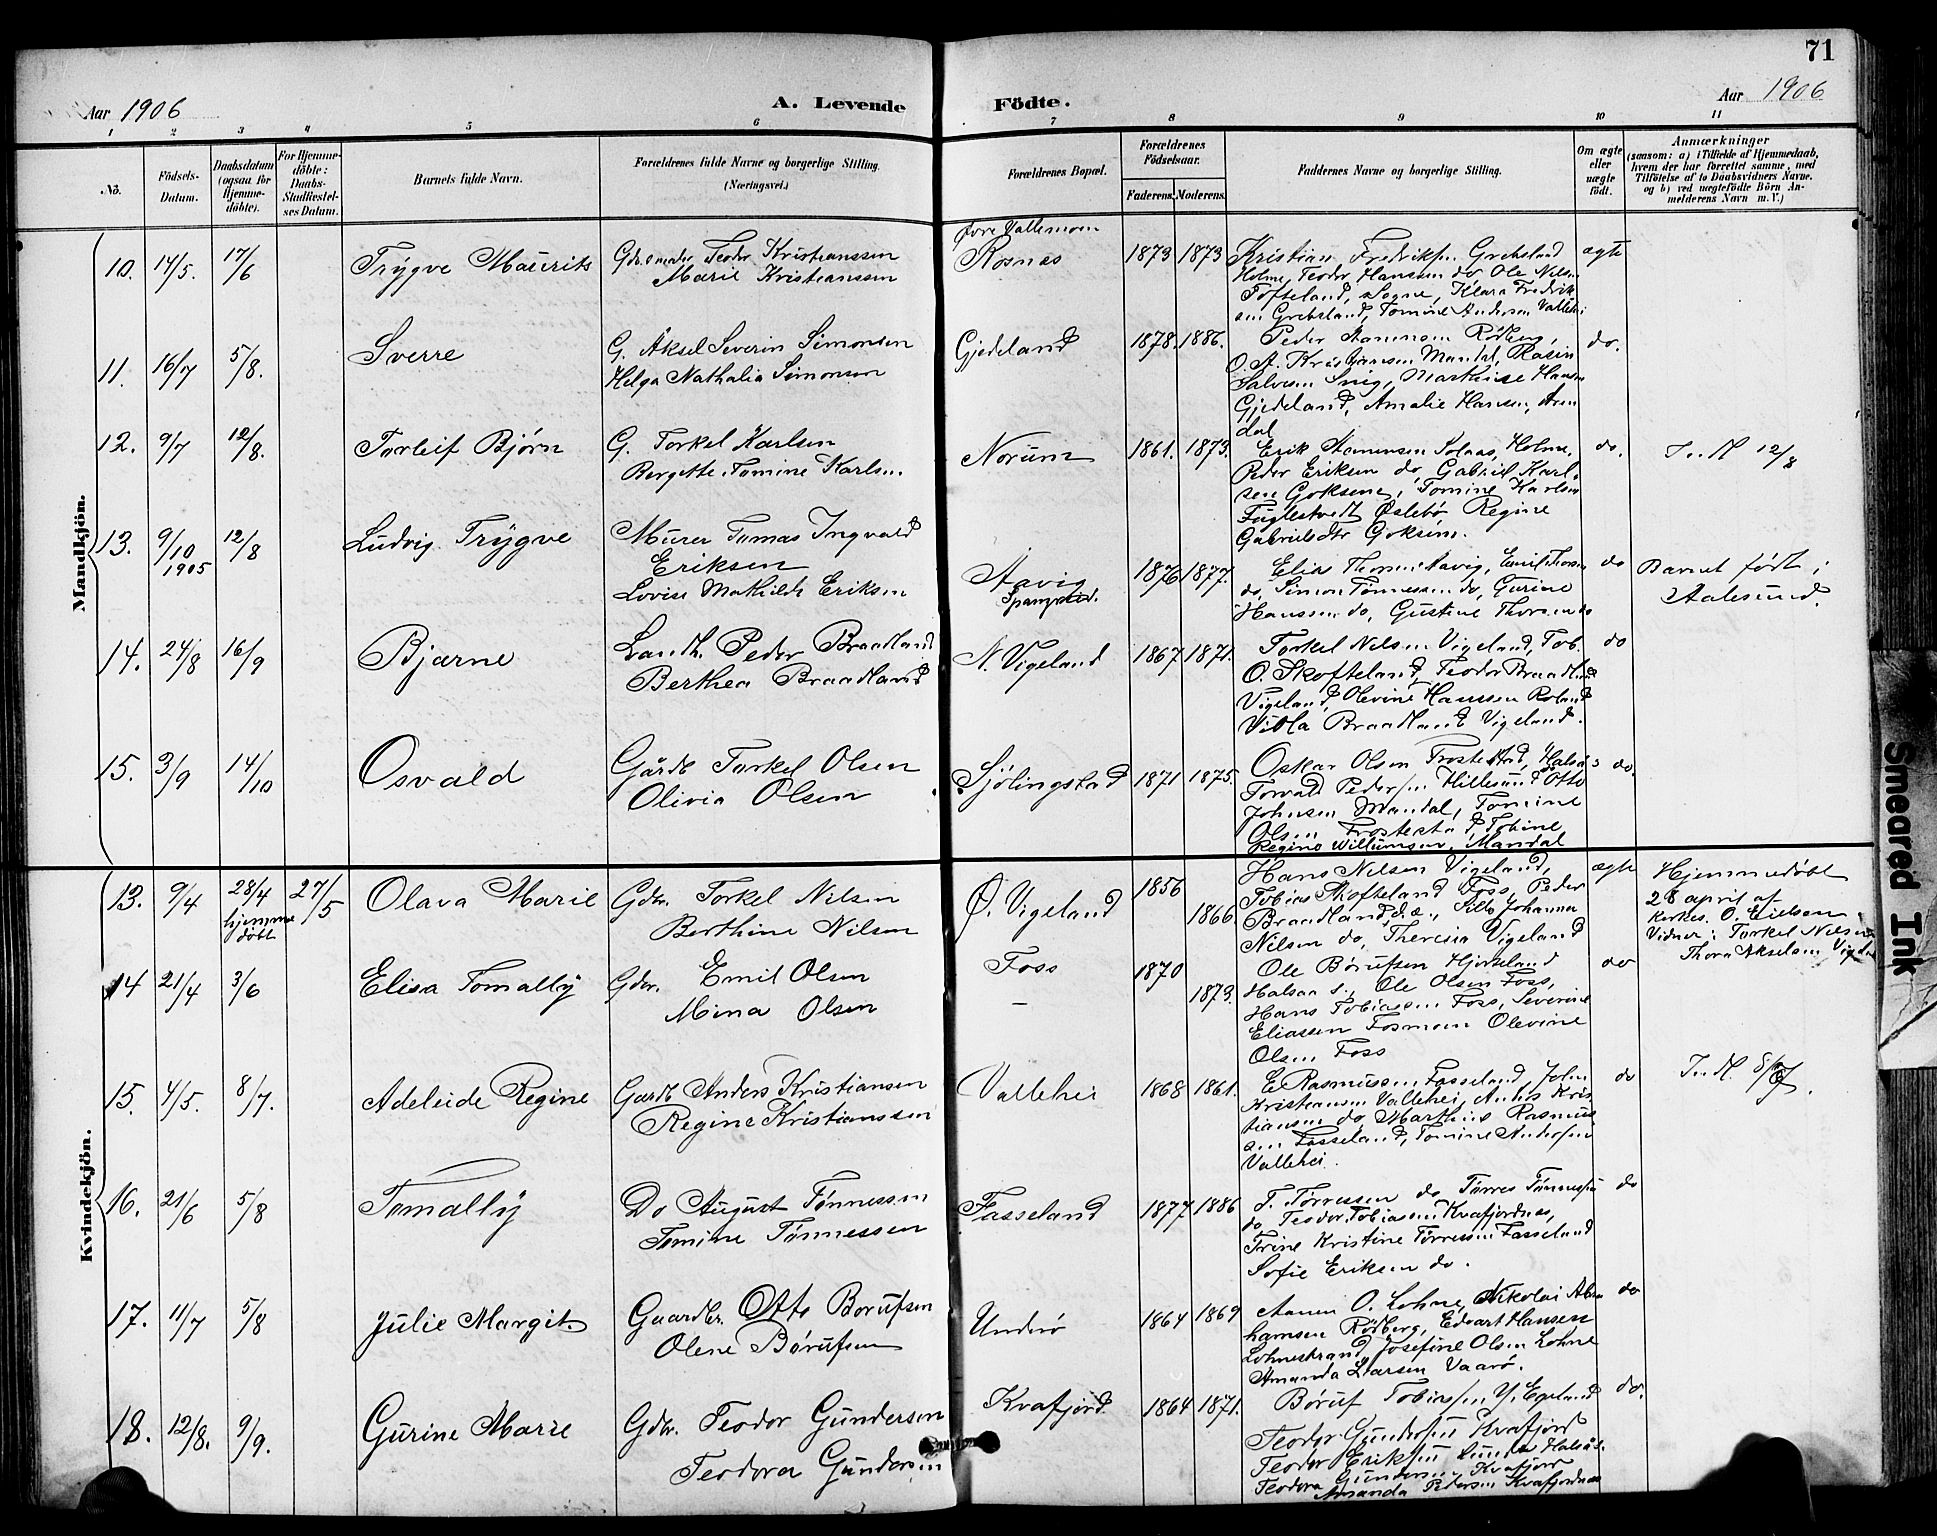 71
Aar 1906
A. Levende
Födte.
Aar 1906
1 2 3 4 5 6 7 8 9 10 11
No.
Födsels-Datum.
Daabsdatum (ogsaa for Hjemme-döbte).
For Hjemme-döbte: Daabs-Stadfæstel-ses Datum.
Barnets fulde Navn.
Forældrenes fulde Navne og borgerlige Stilling. (Næringsvei.)
Forældrenes Bopæl.
Forældrenes Födselsaar.
Faderens. Moderens.
Faddernes Navne og borgerlige Stilling.
Om ægte eller uægte født.
Anmærkninger
(saasom: a) i Tilfælde af Hjemmedaab,
hvem der har forrettet samme, med
Tilföielse af to Daabsvidners Navne.
og b) ved uægtefödte Börn An-
melderens Navn m. V.)
Mandkjön.
10. 14/5. 17/6 Trygve Maurits
Teodor Kristianssen
Marie Kristianssen
øvre Vallemoen
Rosnes
1873 1873
Kristian Fredriksen Grebsland
Holme, Teodor Hanssen do Ole Nilsen
Tofteland, Søgne, Klara Fredrik
sen Grebsland, Tomine Andersen Vallehei
ægte
11. 16/7 5/8. Sverre
G. Aksel Severin Simonsen
Helga Nathalia Simonsen
Gjedeland
1878. 1886.
Peder Aanensen Rödberg,
O. A. Kristiansen Mandal, Rasin
Salvesen Snig, Mathilde Hansen
Gjedeland, Amalie Hansen, Aren
dal
do.
12. 9/7 12/8. Torleif Bjørn
G. Torkel Karlsen
Bergitte Tomine Karlsen
Norum
1861. 1873.
Erik Aanensen Solaas, Holme,
Peder Eriksen do, Gabriel Karl
sen Goksem, Tomine Karlsen
Fuglestvedt Øslebø Regine
Gabrielsdtr Goksem.
do.
12/8
13. 9/10 1905 12/8 Ludvig Trygve
Murer Tomas Ingvald
Eriksen
Lovise Mathilde Eriksen
Aavig
Spangereid.
1876 1877.
Elias Thomsen Aavig, Emil Thorsen
do, Simon Tönnessen do, Gurine
Hanssen do, Gustine Thorsen do
do
Barnet født i
Aalesund.
14. 24/8 16/9 Bjarne
Landh. Peder Braadland
Berthea Braadland
N. Vigeland
1867 1871.
Torkel Nilsen Vigeland, Tob.
O. Skofteland, Teodor Braadland
Vigeland, Olevine Hanssen Roland
Vibla Braadland Vigeland.
do
15. 3/9 14/10 Osvald
Gårdb Torkel Olsen
Olivia Olsen
Sjölingstad
1871 1875.
Oskar Olsen Frostestad, Halsaas
Torvald Pedersen Hillesund Otto
Johnsen Mandal, Tomine
Olsen Frostestad Tobine
Regine Willumsen, Mandal
do.
Kvindekjön.
13. 9/4 28/4 hjemme döbt 27/5 Olava Marie
Gdbr. Torkel Nilsen
Berthine Nilsen
Ø. Vigeland
1856 1866.
Hans Nilsen Vigeland,
Tobias Skofteland Foss, Peder
Braadland Johanna
Nilsen do, Theresia Vigeland
ægte
Hjemmedøbt
28 april af
Kirkes. O. Eielsen
Vidner: Torkel Nilsen
Thora Akselsen Vigeland
14 21/4 3/6 Elisa Tomally
Gdbr. Emil Olsen
Mina Olsen
Foss
1870 1873.
Ole Børufsen Hjorteland
Halsaa s., Ole Olsen Foss,
Hans Tobiassen Foss, Severine
Eliassen Fosmoen Olevine
Olsen Foss
do
15. 4/5. 8/7. Adeleide Regine
Gardb Anders Kristiansen
Regine Kristianssen
Vallehei
1868 1861.
E. Rasmussen Fasseland, John
Kristiansen Vallehei, Anders Kris
tiansen do, Marthine Rasmus
sen Fasseland, Tomine Andersen
Vallehei.
do
16. 21/6 5/8 Tomally
Do August Tønnessen
Tomine Tønnessen
Fasseland
1877 1886
T. Tørressen do, Tørres Tønnessen
do Teodor Tobiassen Kvafjordnes,
Trine Kristine Tørressen Fasseland
Sofie Eriksen do.
do
17. 11/7 5/8 Julie Margit.
Gaardbr. Otto Børufsen
Olene Børufsen
Underø
1864 1869
Aanen O. Lohne, Nikolai Abra
hamsen Rödberg, Edvart Hansen
Lohnestrand, Josefine Olsen Lohne
Amanda Larsen Vaarø.
do
18. 12/8. 9/9. Gurine Marie
Gdbr. Teodor Gundersen
Teodora Gundersen
Kvafjord
1864 1871.
Børuf Tobiassen Y. Egeland
Teodor Gundersen Kvafjord
Teodor Eriksen Lunde Halsaas.
Teodora Gundersen Kvafjord
Amanda Pedersen Kvafjordnes
do.
Smeared Ink